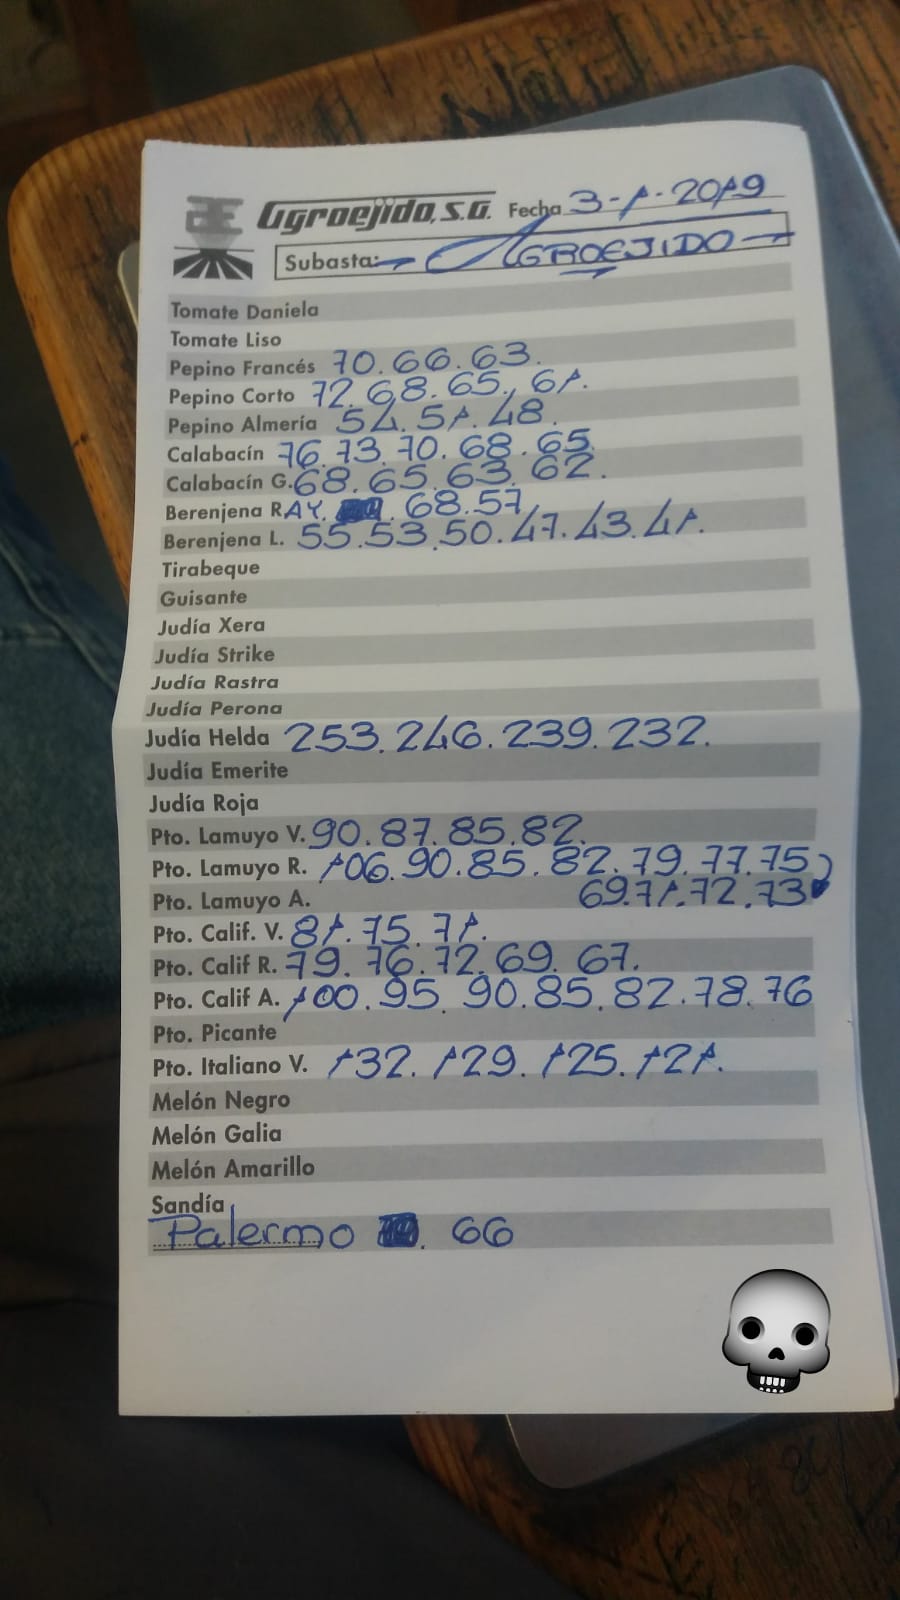 Agroejido, S.A. Fecha 3-1-2019
Subasta: AGROEJIDO
Tomate Daniela
Tomate Liso
Pepino Francés 70.66.63.
Pepino Corto 72.68.65.61.
Pepino Almería 54.51.48.
Calabacín 76.73.70.68.65.
Calabacín G. 68.65.63.62.
Berenjena RAY. 68.57
Berenjena L. 55.53.50.47.43.41.
Tirabeque
Guisante
Judía Xera
Judía Strike
Judía Rastra
Judía Perona
Judía Helda 253.246.239.232.
Judía Emerite
Judía Roja
Pto. Lamuyo V. 90.87.85.82.
Pto. Lamuyo R. 106.90.85.82.79.77.75
Pto. Lamuyo A. 69.71.72.73
Pto. Calif. V. 81.75.71.
Pto. Calif R. 79.76.72.69.67.
Pto. Calif A. 100.95.90.85.82.78.76
Pto. Picante
Pto. Italiano V. 132.129.125.121.
Melón Negro
Melón Galia
Melón Amarillo
Sandía
Palermo . 66